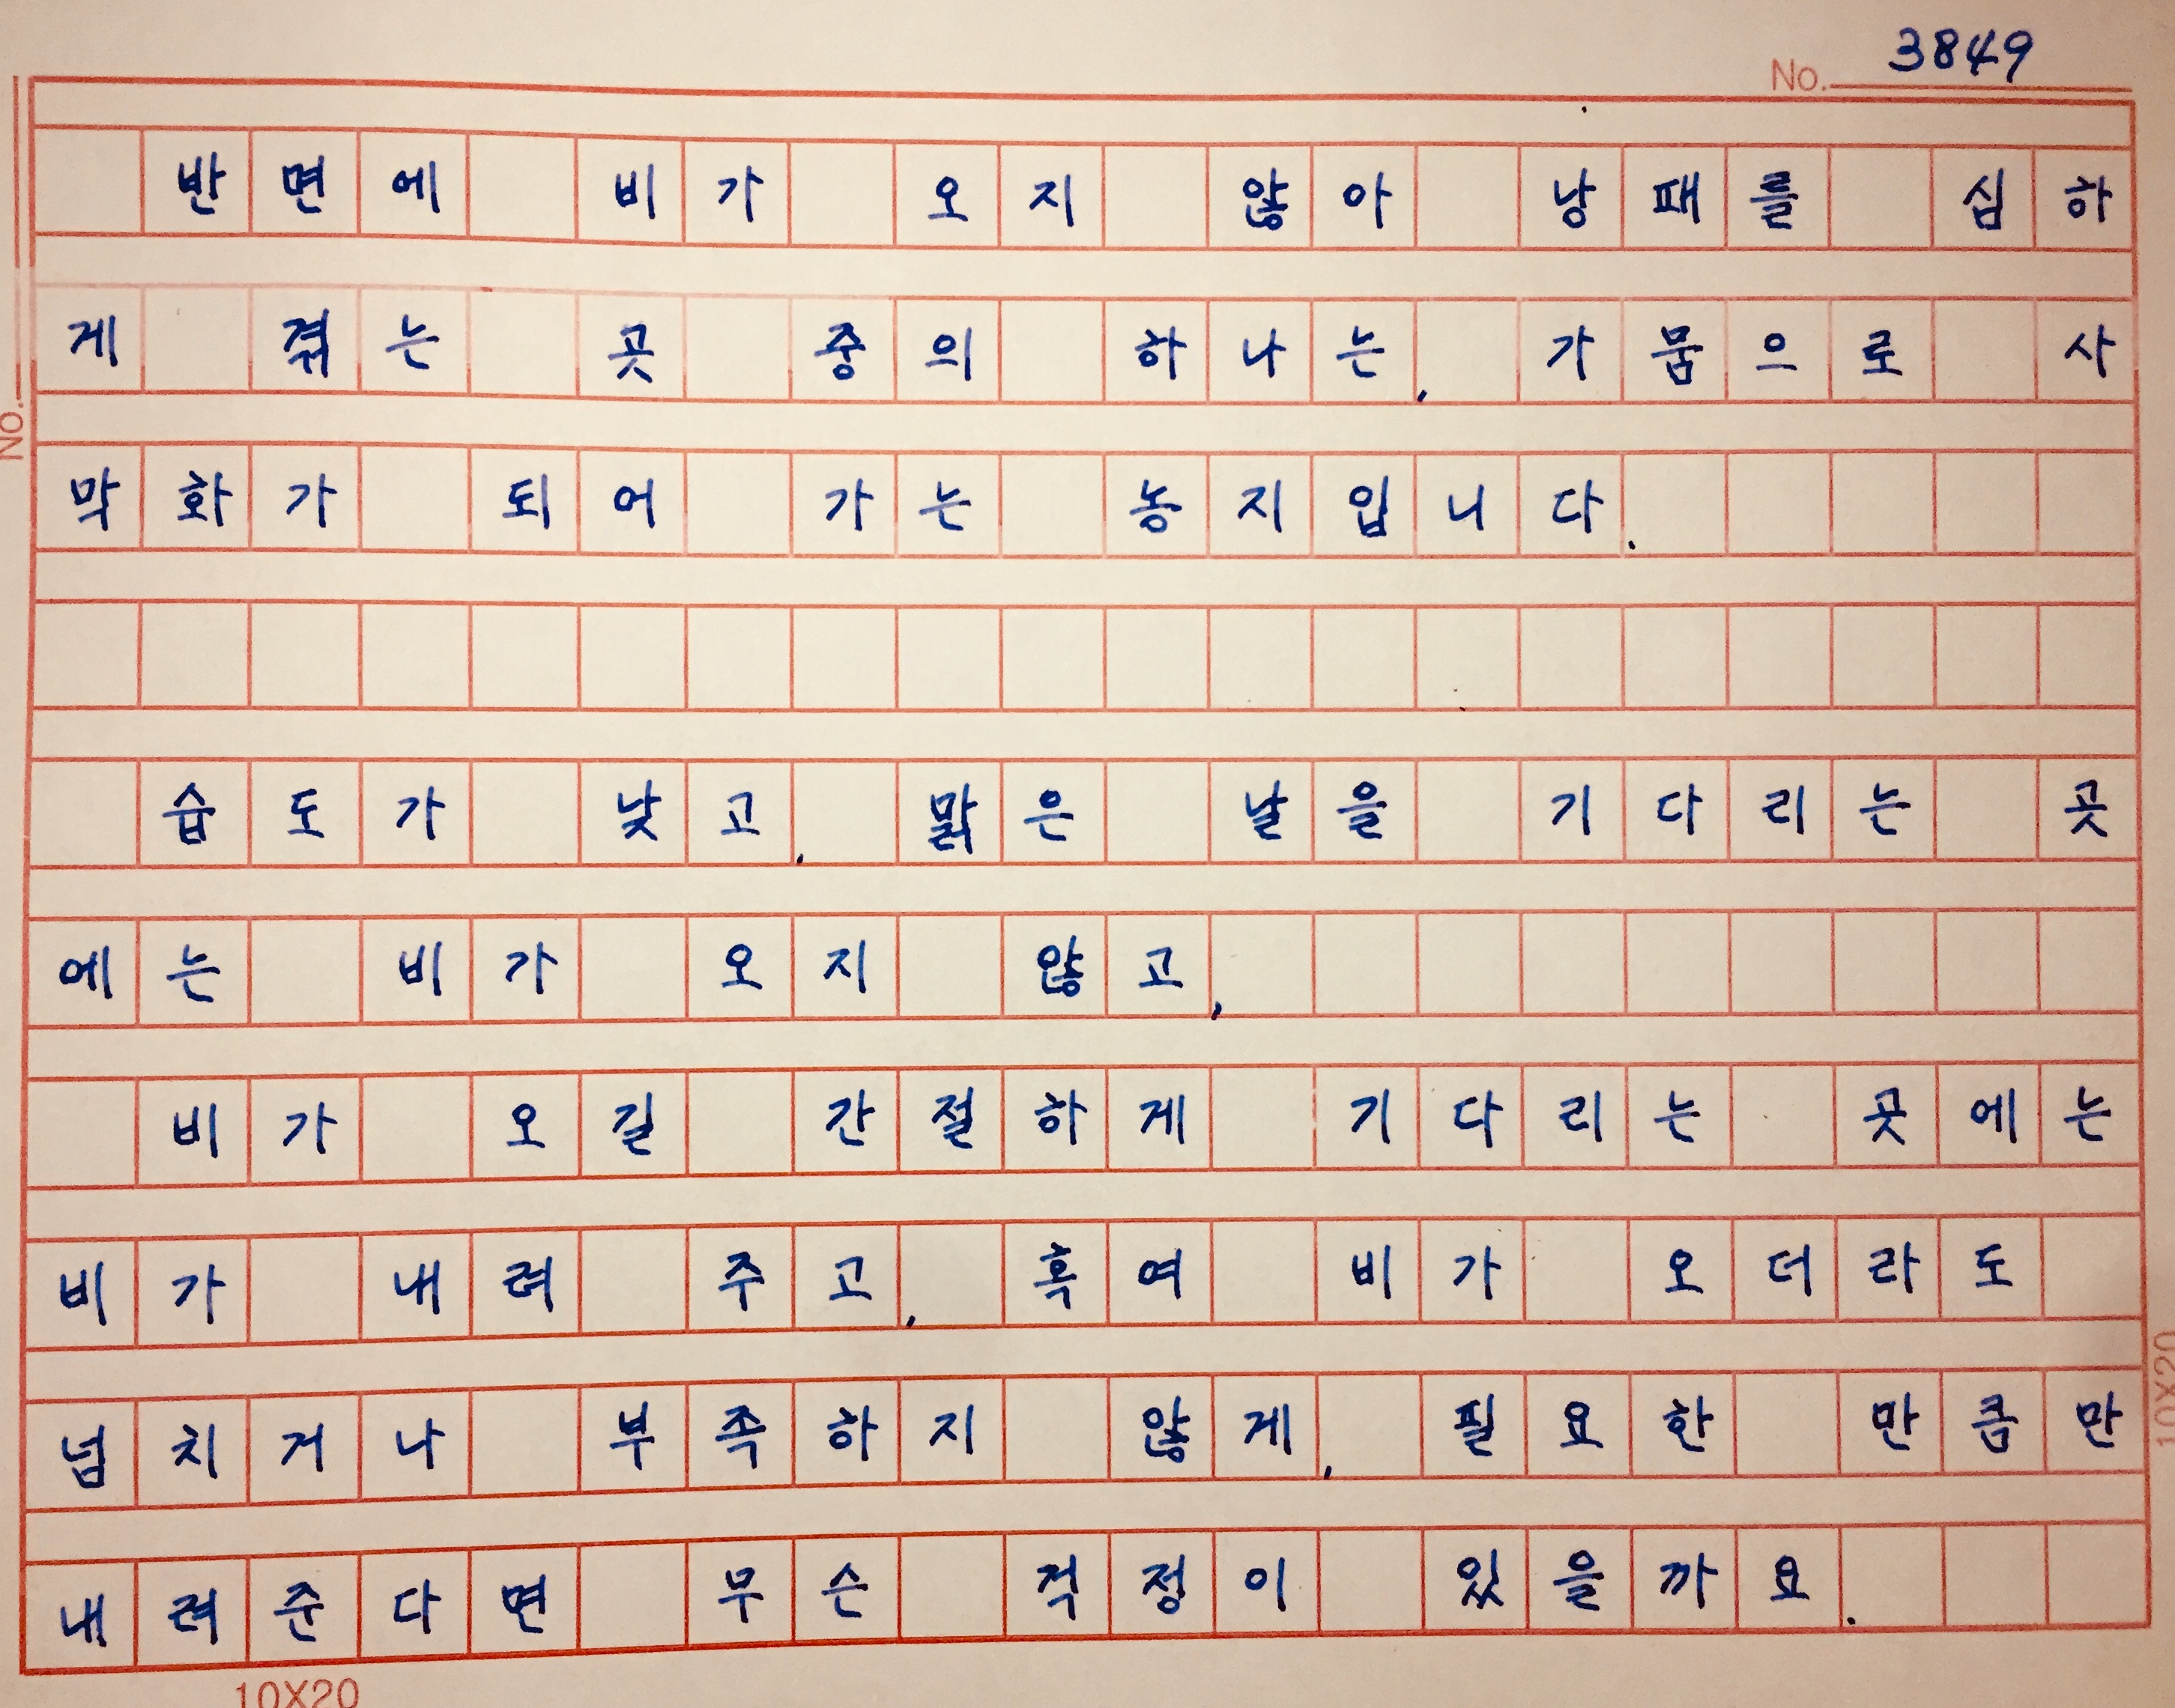 No. 3849
반면에 비가 오지 않아 낭패를 심하
게 겪는 곳 중의 하나는, 가뭄으로 사
막화가 되어 가는 농지입니다.
습도가 낮고, 맑은 날을 기다리는 곳
에는 비가 오지 않고,
비가 오길 간절하게 기다리는 곳에는
비가 내려 주고, 혹여 비가 오더라도
넘치거나 부족하지 않게, 필요한 만큼만
내려준다면 무슨 걱정이 있을까요.
10X20
No.
10X20